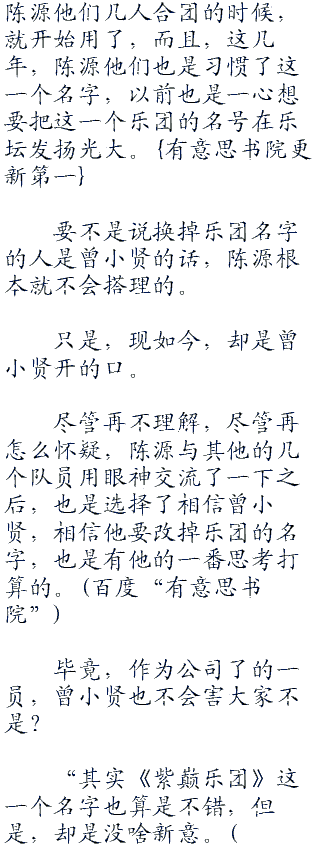 陈源他们几人合团的时候，
就开始用了，而且，这几
年，陈源他们也是习惯了这
一个名字，以前也是一心想
要把这一个乐团的名号在乐
坛发扬光大。{有意思书院更
新第一}
要不是说换掉乐团名字
的人是曾小贤的话，陈源根
本就不会搭理的。
只是，现如今，却是曾
小贤开的口。
尽管再不理解，尽管再
怎么怀疑，陈源与其他的几
个队员用眼神交流了一下之
后，也是选择了相信曾小
贤，相信他要改掉乐团的名
字，也是有他的一番思考打
算的。(百度“有意思书
院”)
毕竟，作为公司了的一
员，曾小贤也不会害大家不
是？
“其实《紫巅乐团》这
一个名字也算是不错，但
是，却是没啥新意。(